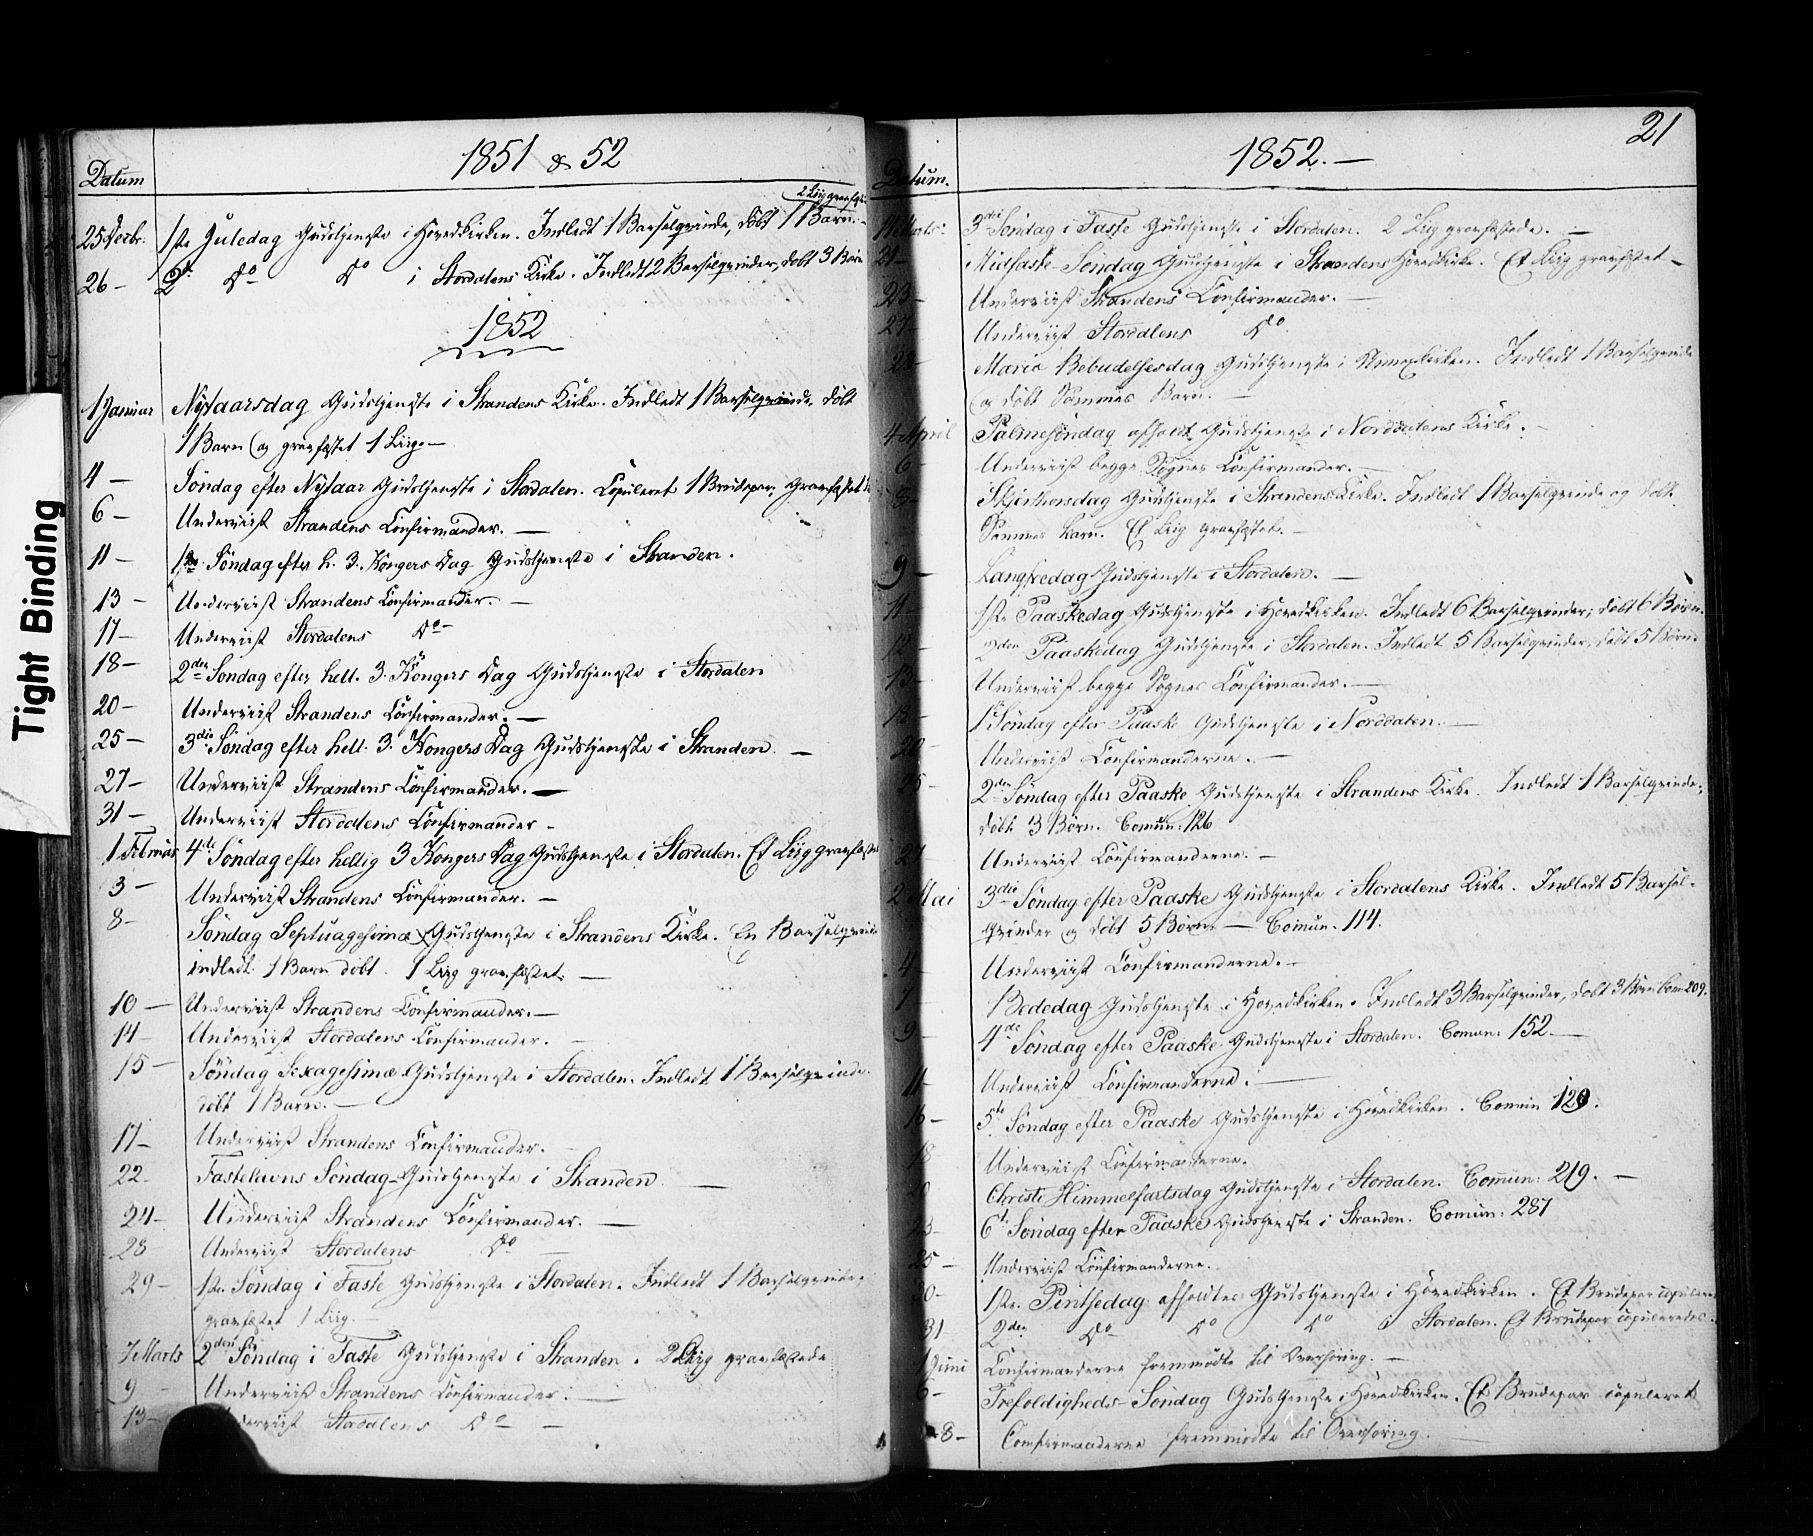 1851 & 52
Datum
2 Liig gravfæst
25 Decbr. 1ste Juledag Gudstjeneste i Hovedkirken. Indledt 1 Barselqvinde, döbt 1 Barn.
26 – 2den Do Do i Stordalens Kirke. Indledt 2 Barselqvinder, döbt 3 Börn
1852
1 Januar Nytaarsdag Gudstjeneste i Strandens Kirke. Indledt 1 Barselqvinde, döbt
1 Barn og gravfæstet 1 Liig. –
4 – Söndag efter Nytaar Gudstjeneste i Stordalen. Copuleret 1 Brudepar. Gravfæstet
6 – Underviist Strandens Confirmander. –
11 – 1ste Söndag efter h. 3. Kongers Dag Gudstjeneste i Stranden.
13 – Underviist Strandens Confirmander. –
17 – Underviist Stordalens Do –
18 – 2den Söndag efter hell. 3. Kongers Dag Gudstjeneste i Stordalen
20 – Underviist Strandens Confirmander. –
25 – 3die Söndag efter hell. 3. Kongers Dag Gudstjeneste i Stranden. –
27 – Underviist Strandens Confirmander. –
31 – Underviist Stordalens Confirmander –
1 Februar 4de Söndag efter hellig 3 Kongers Dag Gudstjeneste i Stordalen. Et Liig gravfæstet
3 – Underviist Strandens Confirmander. –
8 – Söndag Septuagesimæ Gudstjeneste i Strandens Kirke. En Barselqvinde
indledt. 1 Barn döbt. 1 Liig gravfæstet. –
10 – Underviist Strandens Confirmander. –
14 – Underviist Stordalens Confirmander. –
15 – Söndag Sexagesimæ Gudstjeneste i Stordalen. Indledt 1 Barselqvinde.
döbt 1 Barn. –
17 – Underviist Strandens Confirmander.
22 – Fastelavns Söndag Gudstjeneste i Stranden. –
24 – Underviist Strandens Confirmander. –
28 Underviist Stordalens Do –
29 – 1ste Söndag i Faste Gudstjeneste i Stordalen. Indledt 1 Barselqvinde.
gravfæstet 1 Liig. –
7 Marts 2den Söndag i Faste Gudstjeneste i Stranden. 2 Liig gravfæstede
9 – Underviist Strandens Confirmander. –
13 – Underviist Stordalens Do –
21
1852. –
Datum.
14 Marts. 3die Söndag i Faste Gudstjeneste i Stordalen. 2 Liig gravfæstede. –
21 – Midfaste-Söndag Gudstjeneste i Strandens Hovedkirke. Et Liig gravfæstet –
23 – Underviist Strandens Confirmander. –
27 – Underviist Stordalens Do
28 – Mariæ Bebudelsesdag Gudstjeneste i Annexkirken. Indledt 1 Barselqvinde
og döbt Sammes Barn. –
4 April Palmesöndag afholdt Gudstjeneste i Norddalens Kirke. –
6 – Underviist begge Sognes Confirmander. –
8 – Skjærthorsdag Gudstjeneste i Strandens Kirke. Indledt 1 Barselqvinde og döbt
Sammes Barn. Et Liig gravfæstet. –
9 – Langfredag Gudstjeneste i Stordalen. –
11 – 1ste Paaskedag Gudstjeneste i Hovedkirken. Indledt 6 Barselqvinder; döbt 6 Börn.
12 – 2den Paaskedag Gudstjeneste i Stordalen. Indledt 5 Barselqvinder, döbt 5 Börn.
13 – Underviist begge Sognes Confirmander. –
18 – 1ste Söndag efter Paaske Gudstjeneste i Norddalen. –
20 – Underviist Confirmanderne. –
25 – 2den Söndag efter Paaske Gudstjeneste i Strandens Kirke. Indledt 1 Barselqvinde;
döbt 3 Börn. Comun: 126
27 Underviist Confirmanderne. –
2 Mai 3die Söndag efter Paaske Gudstjeneste i Stordalens Kirke. Indledt 5 Barsel-
qvinder og döbt 5 Börn. – Comun. 114.
4 – Underviist Confirmanderne. –
7 – Bededag Gudstjeneste i Hovedkirken. Indledt 3 Barselqvinder, döbt 3 Börn Com 209.
9 – 4de Söndag efter Paaske Gudstjeneste i Stordalen. Comun: 152. –
11 – Underviist Confirmanderne. –
16 – 5te Söndag efter Paaske Gudstjeneste i Hovedkirken. Comun 129.
18 Underviist Confirmanderne.
20 Christi Himmelfartsdag Gudstjeneste i Stordalen. Comun: 219. –
23 – 6te Söndag efter Paaske Gudstjeneste i Stranden. Comun: 287
25 – Underviist Confirmanderne.
30 – 1ste Pintsedag afholdtes Gudstjeneste i Hovedkirken. Et Brudepar copuleret
31 2den Do Do Do i Stordalen. Et Brudepar copuleredes.
1 Juni Confirmanderne fremmödte til Overhöring. –
6 – Trefoldigheds Söndag Gudstjeneste i Hovedkirken. Et Brudepar copuleret
8 – Confirmanderne fremmödte til Overhöring. –
Tight Binding